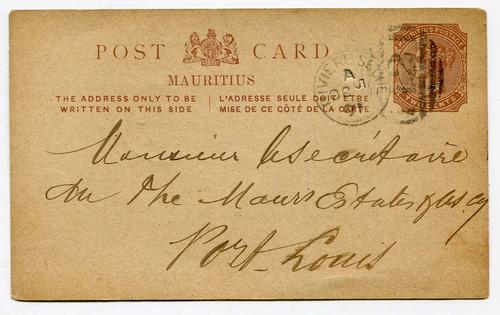 POST CARD
MAURITIUS
THE ADDRESS ONLY TO BE WRITTEN ON THIS SIDE
L'ADRESSE SEULE DOIT ETRE MISE DE CE CÔTÉ DE LA CARTE
MAURITIUS POSTAGE
TWO CENTS
A
Monsieur le Secrétaire
du The Maur Estates & As. Cy
Port-Louis